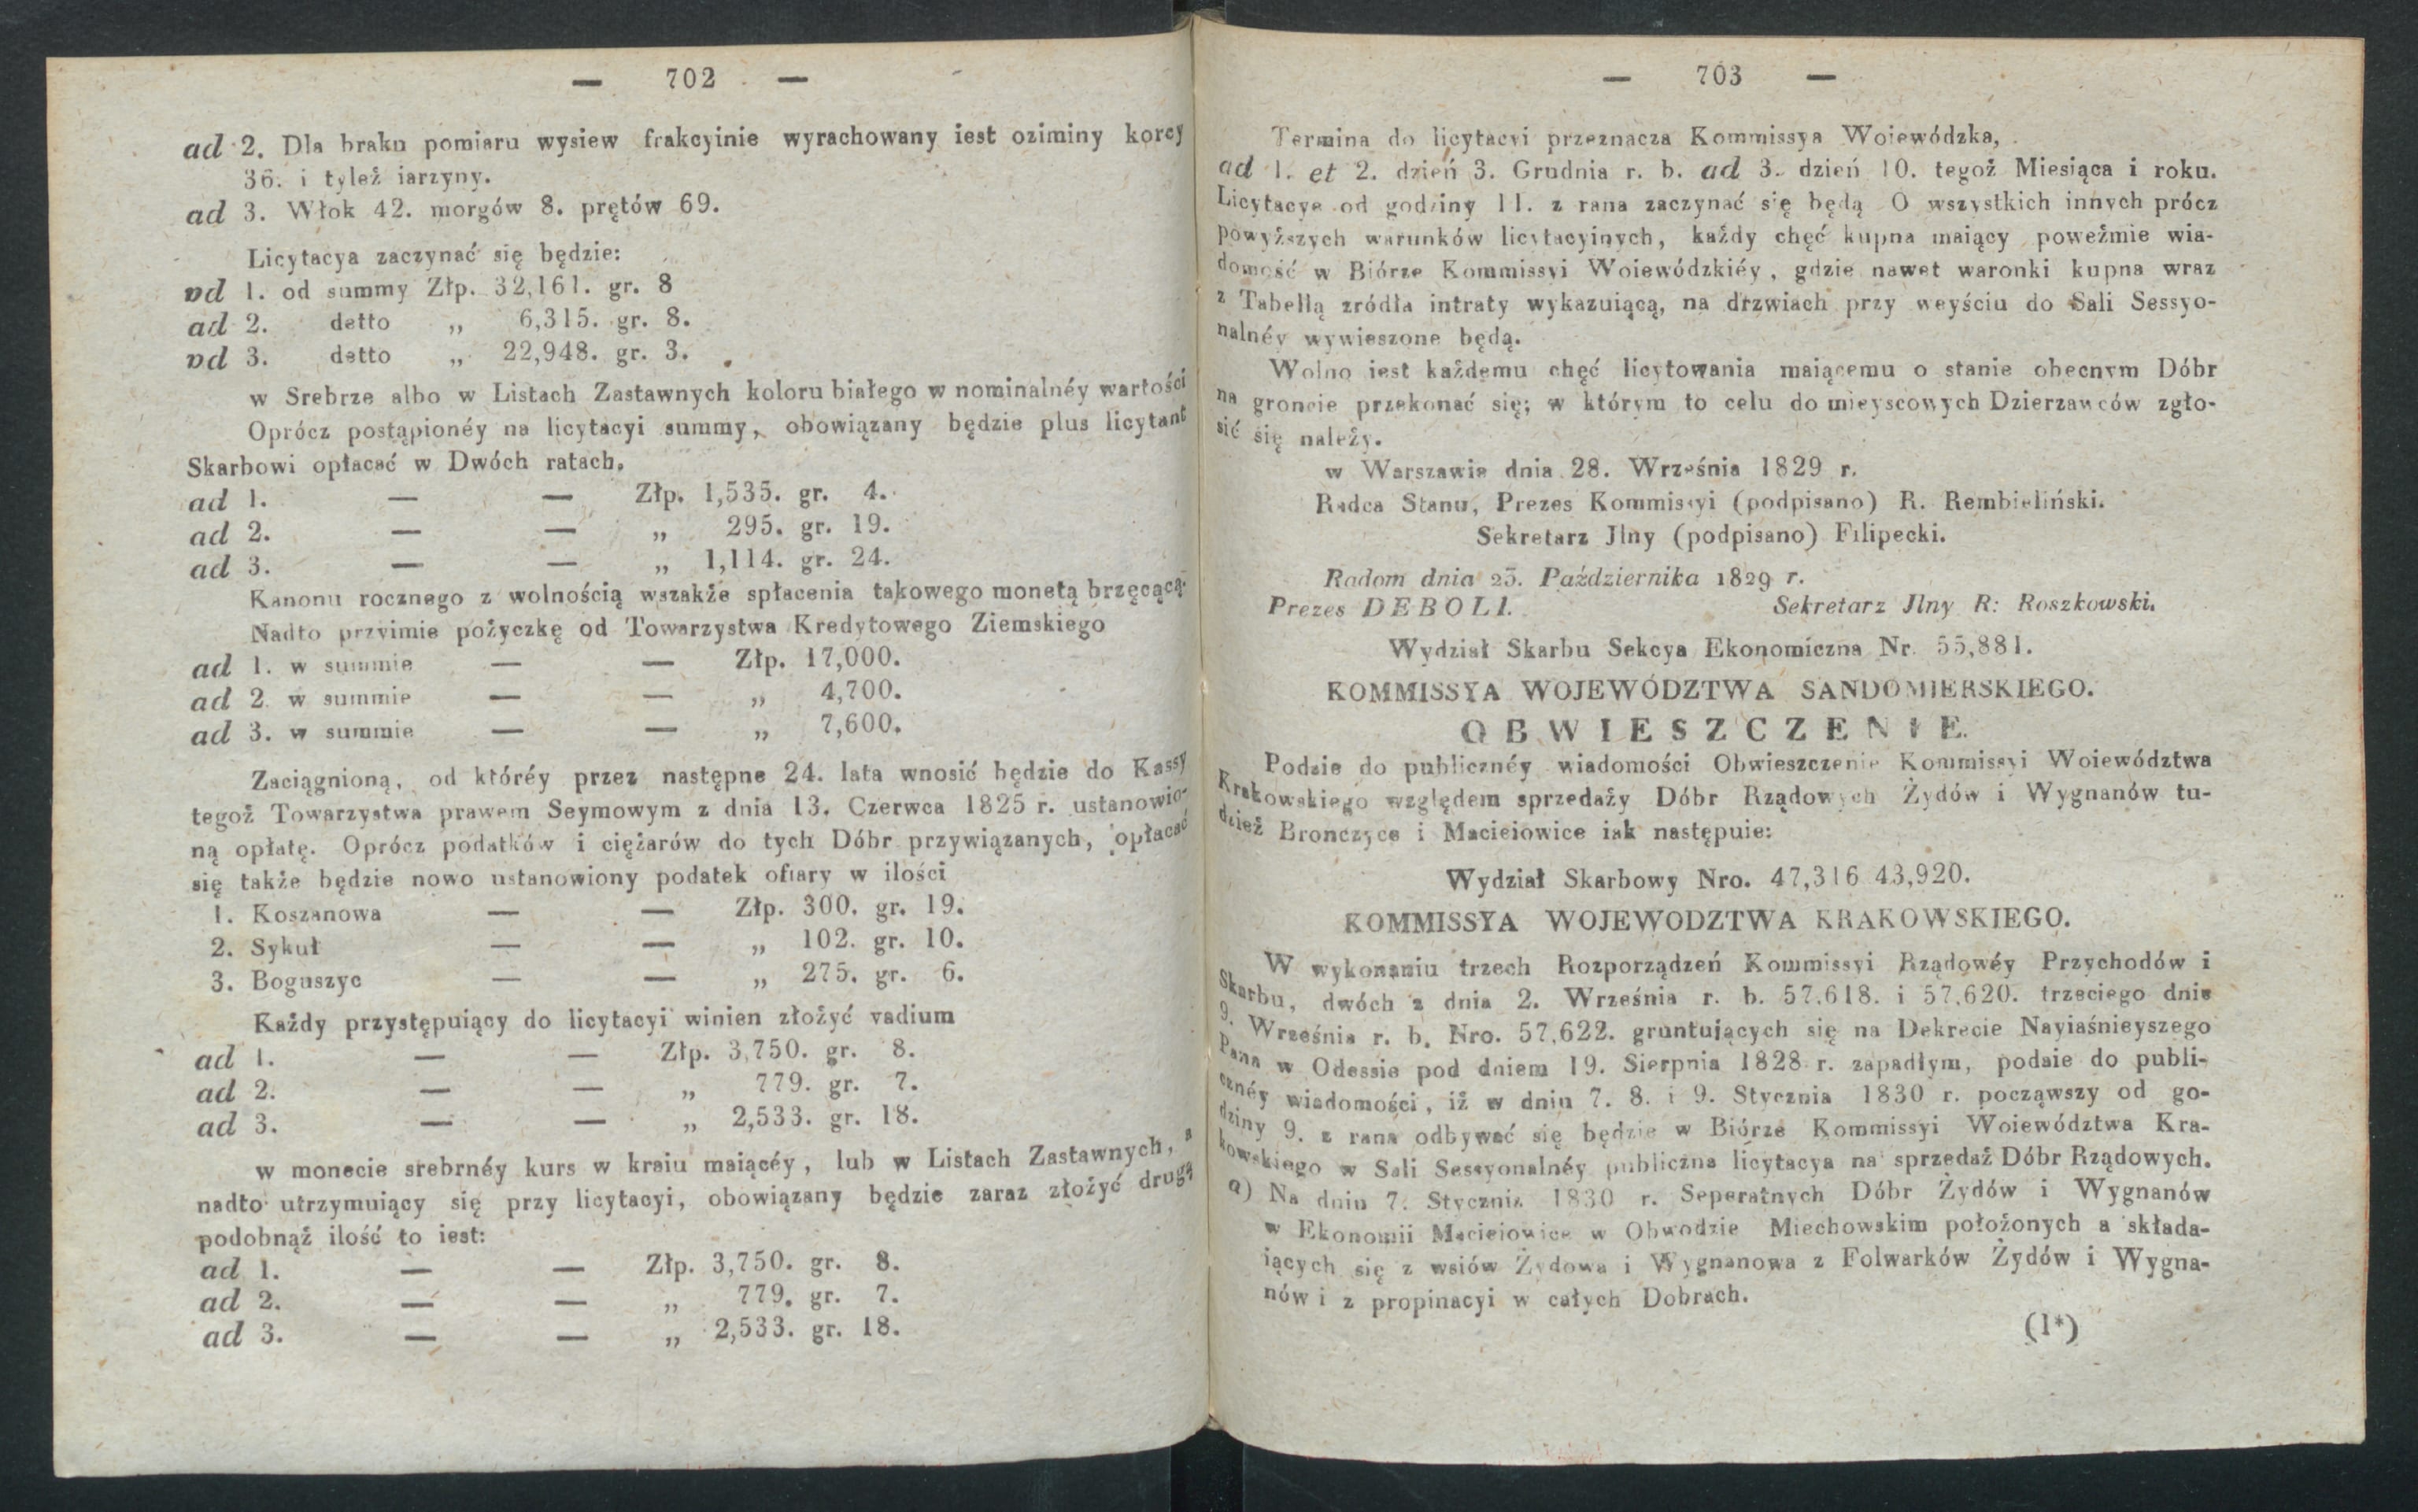 — 702 —
ad 2. Dla braku pomiaru wysiew frakcyinie wyrachowany iest oziminy korcy
36. i tyleż iarzyny.
ad 3. Włok 42. morgów 8. prętów 69.
Licytacya zaczynać się będzie:
ad 1. od summy Złp. 32,161. gr. 8
ad 2. detto „ 6,315. gr. 8.
ad 3. detto „ 22,948. gr. 3.
w Srebrze albo w Listach Zastawnych koloru białego w nominalnéy wartości
Oprócz postąpionéy na licytacyi summy, obowiązany będzie plus licytant
Skarbowi opłacać w Dwóch ratach,
ad 1. — — Złp. 1,535. gr. 4.
ad 2. — — „ 295. gr. 19.
ad 3. — — „ 1,114. gr. 24.
Kanonu rocznego z wolnością wszakże spłacenia takowego monetą brzęcącą.
Nadto przyimie pożyczkę od Towarzystwa Kredytowego Ziemskiego
ad 1. w summie — — Złp. 17,000.
ad 2. w summie — — „ 4,700.
ad 3. w summie — — „ 7,600.
Zaciągnioną, od któréy przez następne 24. lata wnosić będzie do Kassy
tegoż Towarzystwa prawem Seymowym z dnia 13. Czerwca 1825 r. ustanowio-
ną opłatę. Oprócz podatków i ciężarów do tych Dóbr przywiązanych, opłacać
się także będzie nowo ustanowiony podatek ofiary w ilości
1. Koszanowa — — Złp. 300. gr. 19.
2. Sykuł — — „ 102. gr. 10.
3. Boguszyc — — „ 275. gr. 6.
Każdy przystępuiący do licytacyi winien złożyć vadium
ad 1. — — Złp. 3,750. gr. 8.
ad 2. — — „ 779. gr. 7.
ad 3. — — „ 2,533. gr. 18.
w monecie srebrnéy kurs w kraiu maiącéy, lub w Listach Zastawnych, a
nadto utrzymuiący się przy licytacyi, obowiązany będzie zaraz złożyć drugą
podobnąż ilość to iest:
ad 1. — — Złp. 3,750. gr. 8.
ad 2. — — „ 779. gr. 7.
ad 3. — — „ 2,533. gr. 18.
— 703 —
Termina do licytacyi przeznacza Kommissya Woiewódzka,
ad 1. et 2. dzień 3. Grudnia r. b. ad 3. dzień 10. tegoż Miesiąca i roku.
Licytacye od godziny 11. z rana zaczynać się będą O wszystkich innych prócz
powyższych warunków licytacyinych, każdy chęć kupna maiący poweźmie wia-
domość w Biórze Kommissyi Woiewódzkiéy, gdzie nawet waronki kupna wraz
z Tabellą zródła intraty wykazuiącą, na drzwiach przy weyściu do Sali Sessyo-
nalnéy wywieszone będą.
Wolno iest każdemu chęć licytowania maiącemu o stanie obecnym Dóbr
na groncie przekonać się; w którym to celu do mieyscowych Dzierzawców zgło-
sić się należy.
w Warszawie dnia 28. Września 1829 r.
Radca Stanu, Prezes Kommissyi (podpisano) R. Rembieliński.
Sekretarz Jlny (podpisano) Filipecki.
Radom dnia 23. Października 1829 r.
Prezes DEBOLI. Sekretarz Jlny R: Roszkowski.
Wydział Skarbu Sekcya Ekonomiczna Nr. 55,881.
KOMMISSYA WOJEWÓDZTWA SANDOMIERSKIEGO.
OBWIESZCZENIE.
Podaie do publicznéy wiadomości Obwieszczenie Kommissyi Woiewództwa
Krakowskiego względem sprzedaży Dóbr Rządowych Żydów i Wygnanów tu-
dzież Bronczyce i Macieiowice iak następuie:
Wydział Skarbowy Nro. 47,316 43,920.
KOMMISSYA WOJEWODZTWA KRAKOWSKIEGO.
W wykonaniu trzech Rozporządzeń Kommissyi Rządowéy Przychodów i
Skarbu, dwóch z dnia 2. Września r. b. 57,618. i 57,620. trzeciego dnia
9. Września r. b. Nro. 57,622. gruntujących się na Dekrecie Nayiaśnieyszego
Pana w Odessie pod dniem 19. Sierpnia 1828 r. zapadłym, podaie do publi-
cznéy wiadomości, iż w dniu 7. 8. i 9. Stycznia 1830 r. począwszy od go-
dziny 9. z rana odbywać się będzie w Biórze Kommissyi Woiewództwa Kra-
kowskiego w Sali Sessyonalnéy publiczna licytacya na sprzedaż Dóbr Rządowych.
a) Na dniu 7. Stycznia 1830 r. Seperatnych Dóbr Żydów i Wygnanów
w Ekonomii Macieiowice w Obwodzie Miechowskim położonych a składa-
iących się z wsiów Żydowa i Wygnanowa z Folwarków Żydów i Wygna-
nów i z propinacyi w całych Dobrach.
(1*)